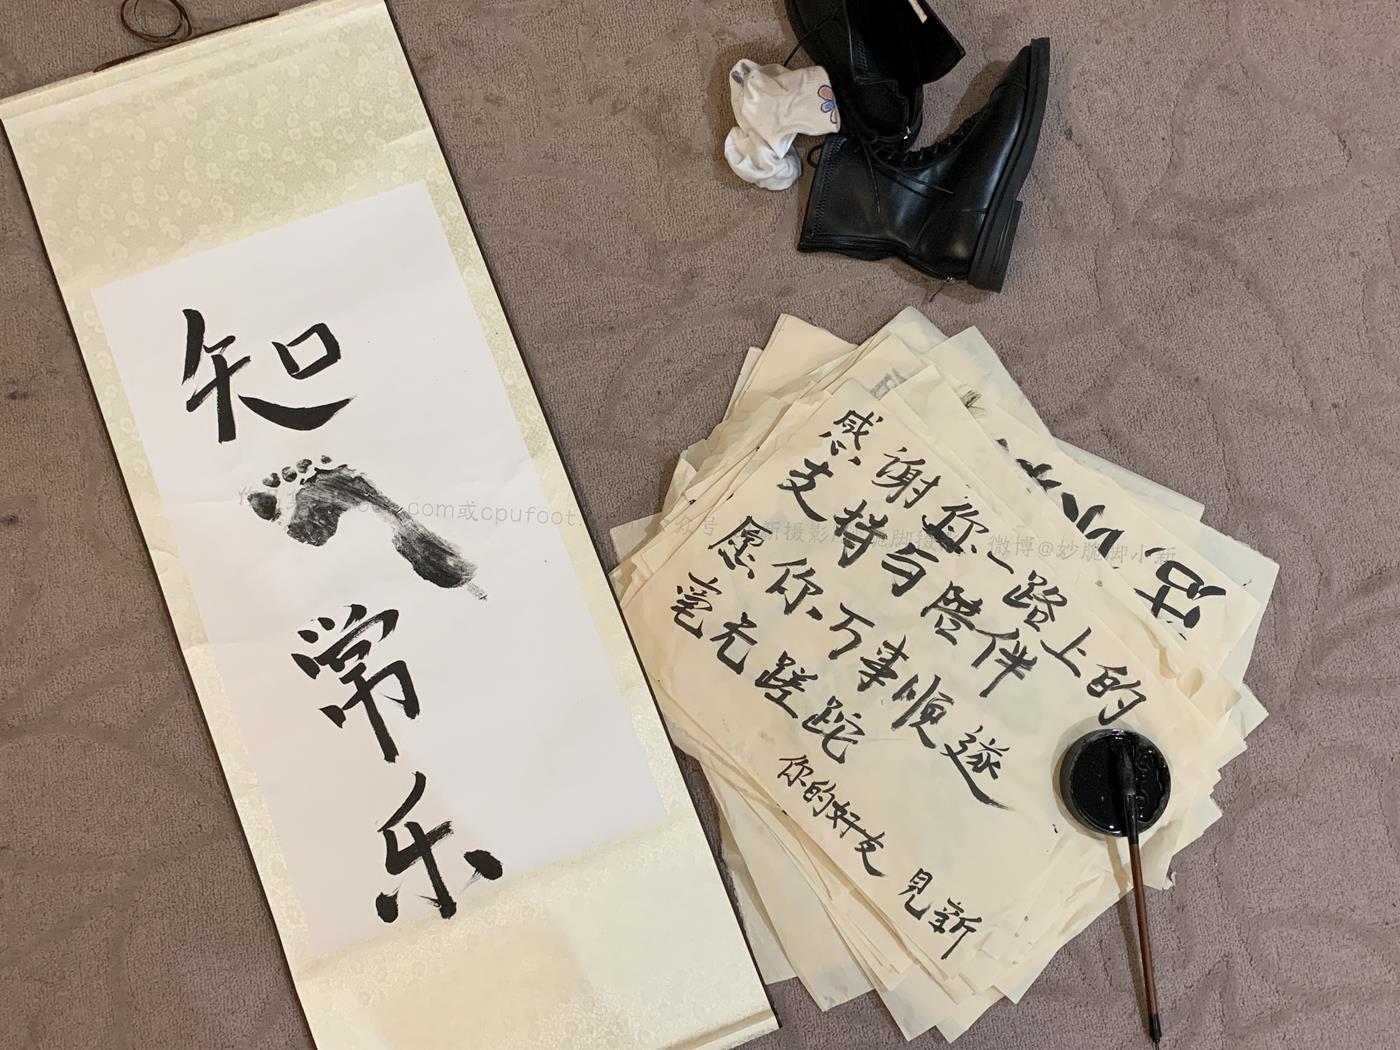 知
常
乐
感谢你一路上的
支持与陪伴
愿你万事顺遂
毫无蹉跎
你的好友 見新
com或cpufoot.
微博@妙脆脚小新